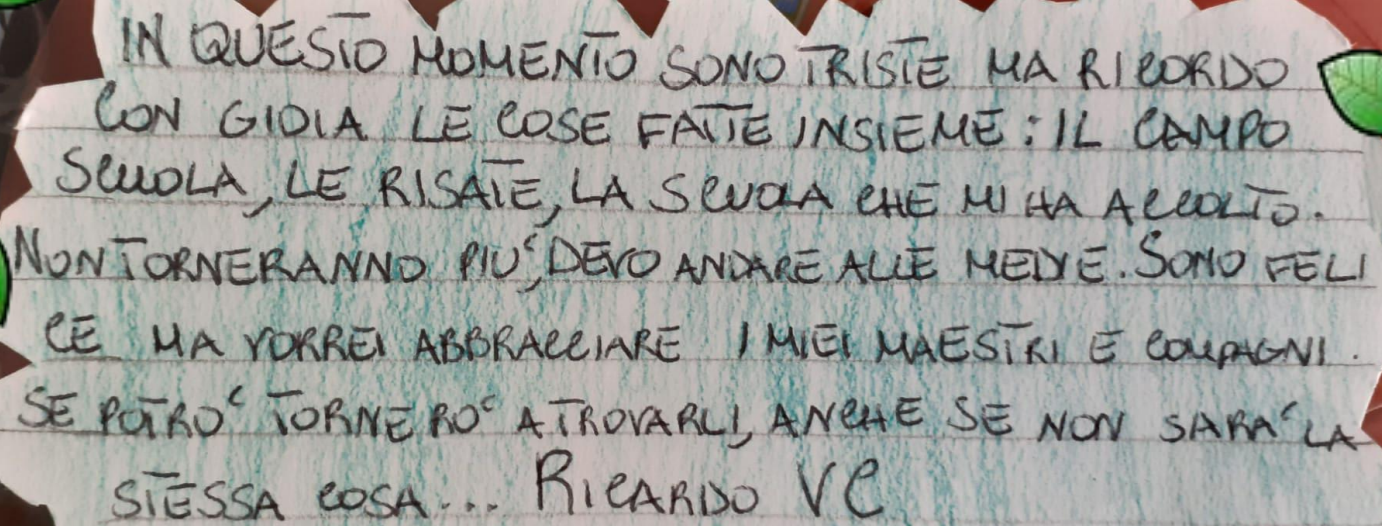 IN QUESTO MOMENTO SONO TRISTE MA RICORDO
CON GIOIA LE COSE FATTE INSIEME: IL CAMPO
SCUOLA, LE RISATE, LA SCUOLA CHE MI HA ACCOLTO.
NON TORNERANNO PIU', DEVO ANDARE ALLE MEDIE. SONO FELI
CE MA VORREI ABBRACCIARE I MIEI MAESTRI E COMPAGNI.
SE POTRO' TORNERO' A TROVARLI, ANCHE SE NON SARA' LA
STESSA COSA... RICARDO VC